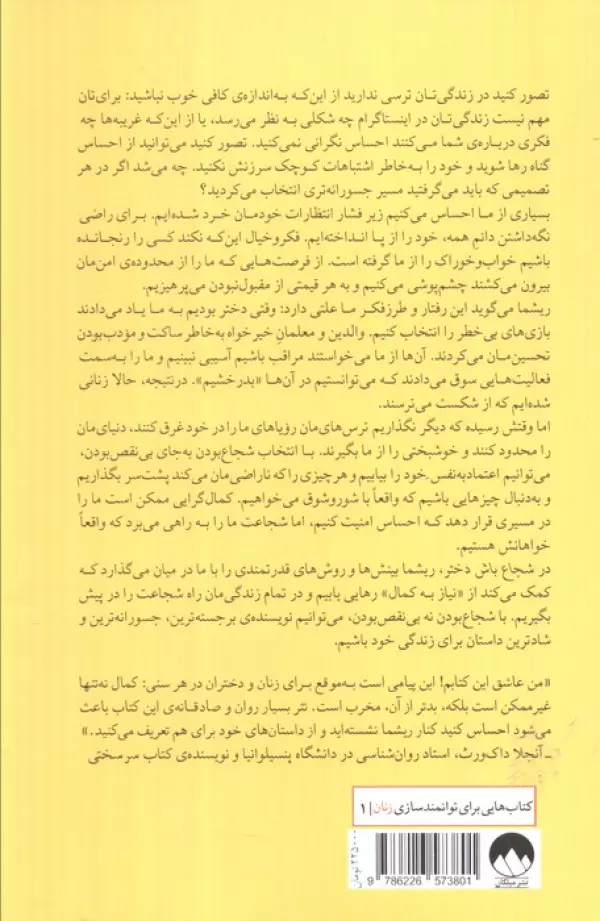 تصور کنید در زندگی‌تان ترسی ندارید از این‌که به‌اندازه‌ی کافی خوب نباشید: برای‌تان
مهم نیست زندگی‌تان در اینستاگرام چه شکلی به نظر می‌رسد، یا از این‌که غریبه‌ها چه
فکری درباره‌ی شما می‌کنند احساس نگرانی نمی‌کنید. تصور کنید می‌توانید از احساس
گناه رها شوید و خود را به‌خاطر اشتباهات کوچک سرزنش نکنید. چه می‌شد اگر در هر
تصمیمی که باید می‌گرفتید مسیر جسورانه‌تری انتخاب می‌کردید؟
بسیاری از ما احساس می‌کنیم زیر فشار انتظارات خودمان خرد شده‌ایم. برای راضی
نگه‌داشتن دائم همه، خود را از پا انداخته‌ایم. فکروخیال این‌که نکند کسی را رنجانده
باشیم خواب‌وخوراک را از ما گرفته است. از فرصت‌هایی که ما را از محدوده‌ی امن‌مان
بیرون می‌کشند چشم‌پوشی می‌کنیم و به هر قیمتی از مقبول‌نبودن می‌پرهیزیم.
ریشما می‌گوید این رفتار و طرزفکر ما علتی دارد: وقتی دختر بودیم به ما یاد می‌دادند
بازی‌های بی‌خطر را انتخاب کنیم. والدین و معلمانِ خیرخواه به‌خاطر ساکت و مؤدب‌بودن
تحسین‌مان می‌کردند. آن‌ها از ما می‌خواستند مراقب باشیم آسیبی نبینیم و ما را به‌سمت
فعالیت‌هایی سوق می‌دادند که می‌توانستیم در آن‌ها «بدرخشیم». درنتیجه، حالا زنانی
شده‌ایم که از شکست می‌ترسند.
اما وقتش رسیده که دیگر نگذاریم ترس‌های‌مان رؤیاهای ما را در خود غرق کنند، دنیای‌مان
را محدود کنند و خوشبختی را از ما بگیرند. با انتخاب شجاع‌بودن به‌جای بی‌نقص‌بودن،
می‌توانیم اعتمادبه‌نفسِ خود را بیابیم و هرچیزی را که ناراضی‌مان می‌کند پشت‌سر بگذاریم
و به‌دنبال چیزهایی باشیم که واقعاً با شوروشوق می‌خواهیم. کمال‌گرایی ممکن است ما را
در مسیری قرار دهد که احساس امنیت کنیم، اما شجاعت ما را به راهی می‌برد که واقعاً
خواهانش هستیم.
در شجاع باش دختر، ریشما بینش‌ها و روش‌های قدرتمندی را با ما در میان می‌گذارد که
کمک می‌کند از «نیاز به کمال» رهایی یابیم و در تمام زندگی‌مان راه شجاعت را در پیش
بگیریم. با شجاع‌بودن نه بی‌نقص‌بودن، می‌توانیم نویسنده‌ی برجسته‌ترین، جسورانه‌ترین و
شادترین داستان برای زندگی خود باشیم.
«من عاشق این کتابم! این پیامی است به‌موقع برای زنان و دختران در هر سنی: کمال نه‌تنها
غیرممکن است بلکه، بدتر از آن، مخرب است. نثر بسیار روان و صادقانه‌ی این کتاب باعث
می‌شود احساس کنید کنار ریشما نشسته‌اید و از داستان‌های خود برای هم تعریف می‌کنید.»
ـ آنجلا داک‌ورث، استاد روان‌شناسی در دانشگاه پنسیلوانیا و نویسنده‌ی کتاب سرسختی
کتاب‌هایی برای توانمندسازی زنان | ۱
۲۲۵۰۰۰ تومان
9 786226 573801
نشر میلکان